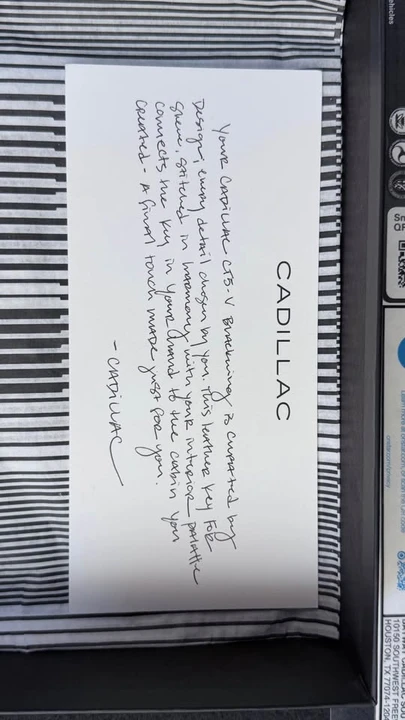 CADILLAC
Your Cadillac CT5-V Blackwing is curated by
Design, every detail chosen by you. This leather key fob
sleeve, stitched in harmony with your interior palatte
connects the key in your hand to the cabin you
created - A final touch made just for you.
- CADILLAC
10150 SOUTHWEST FREE
HOUSTON, TX 77074-120